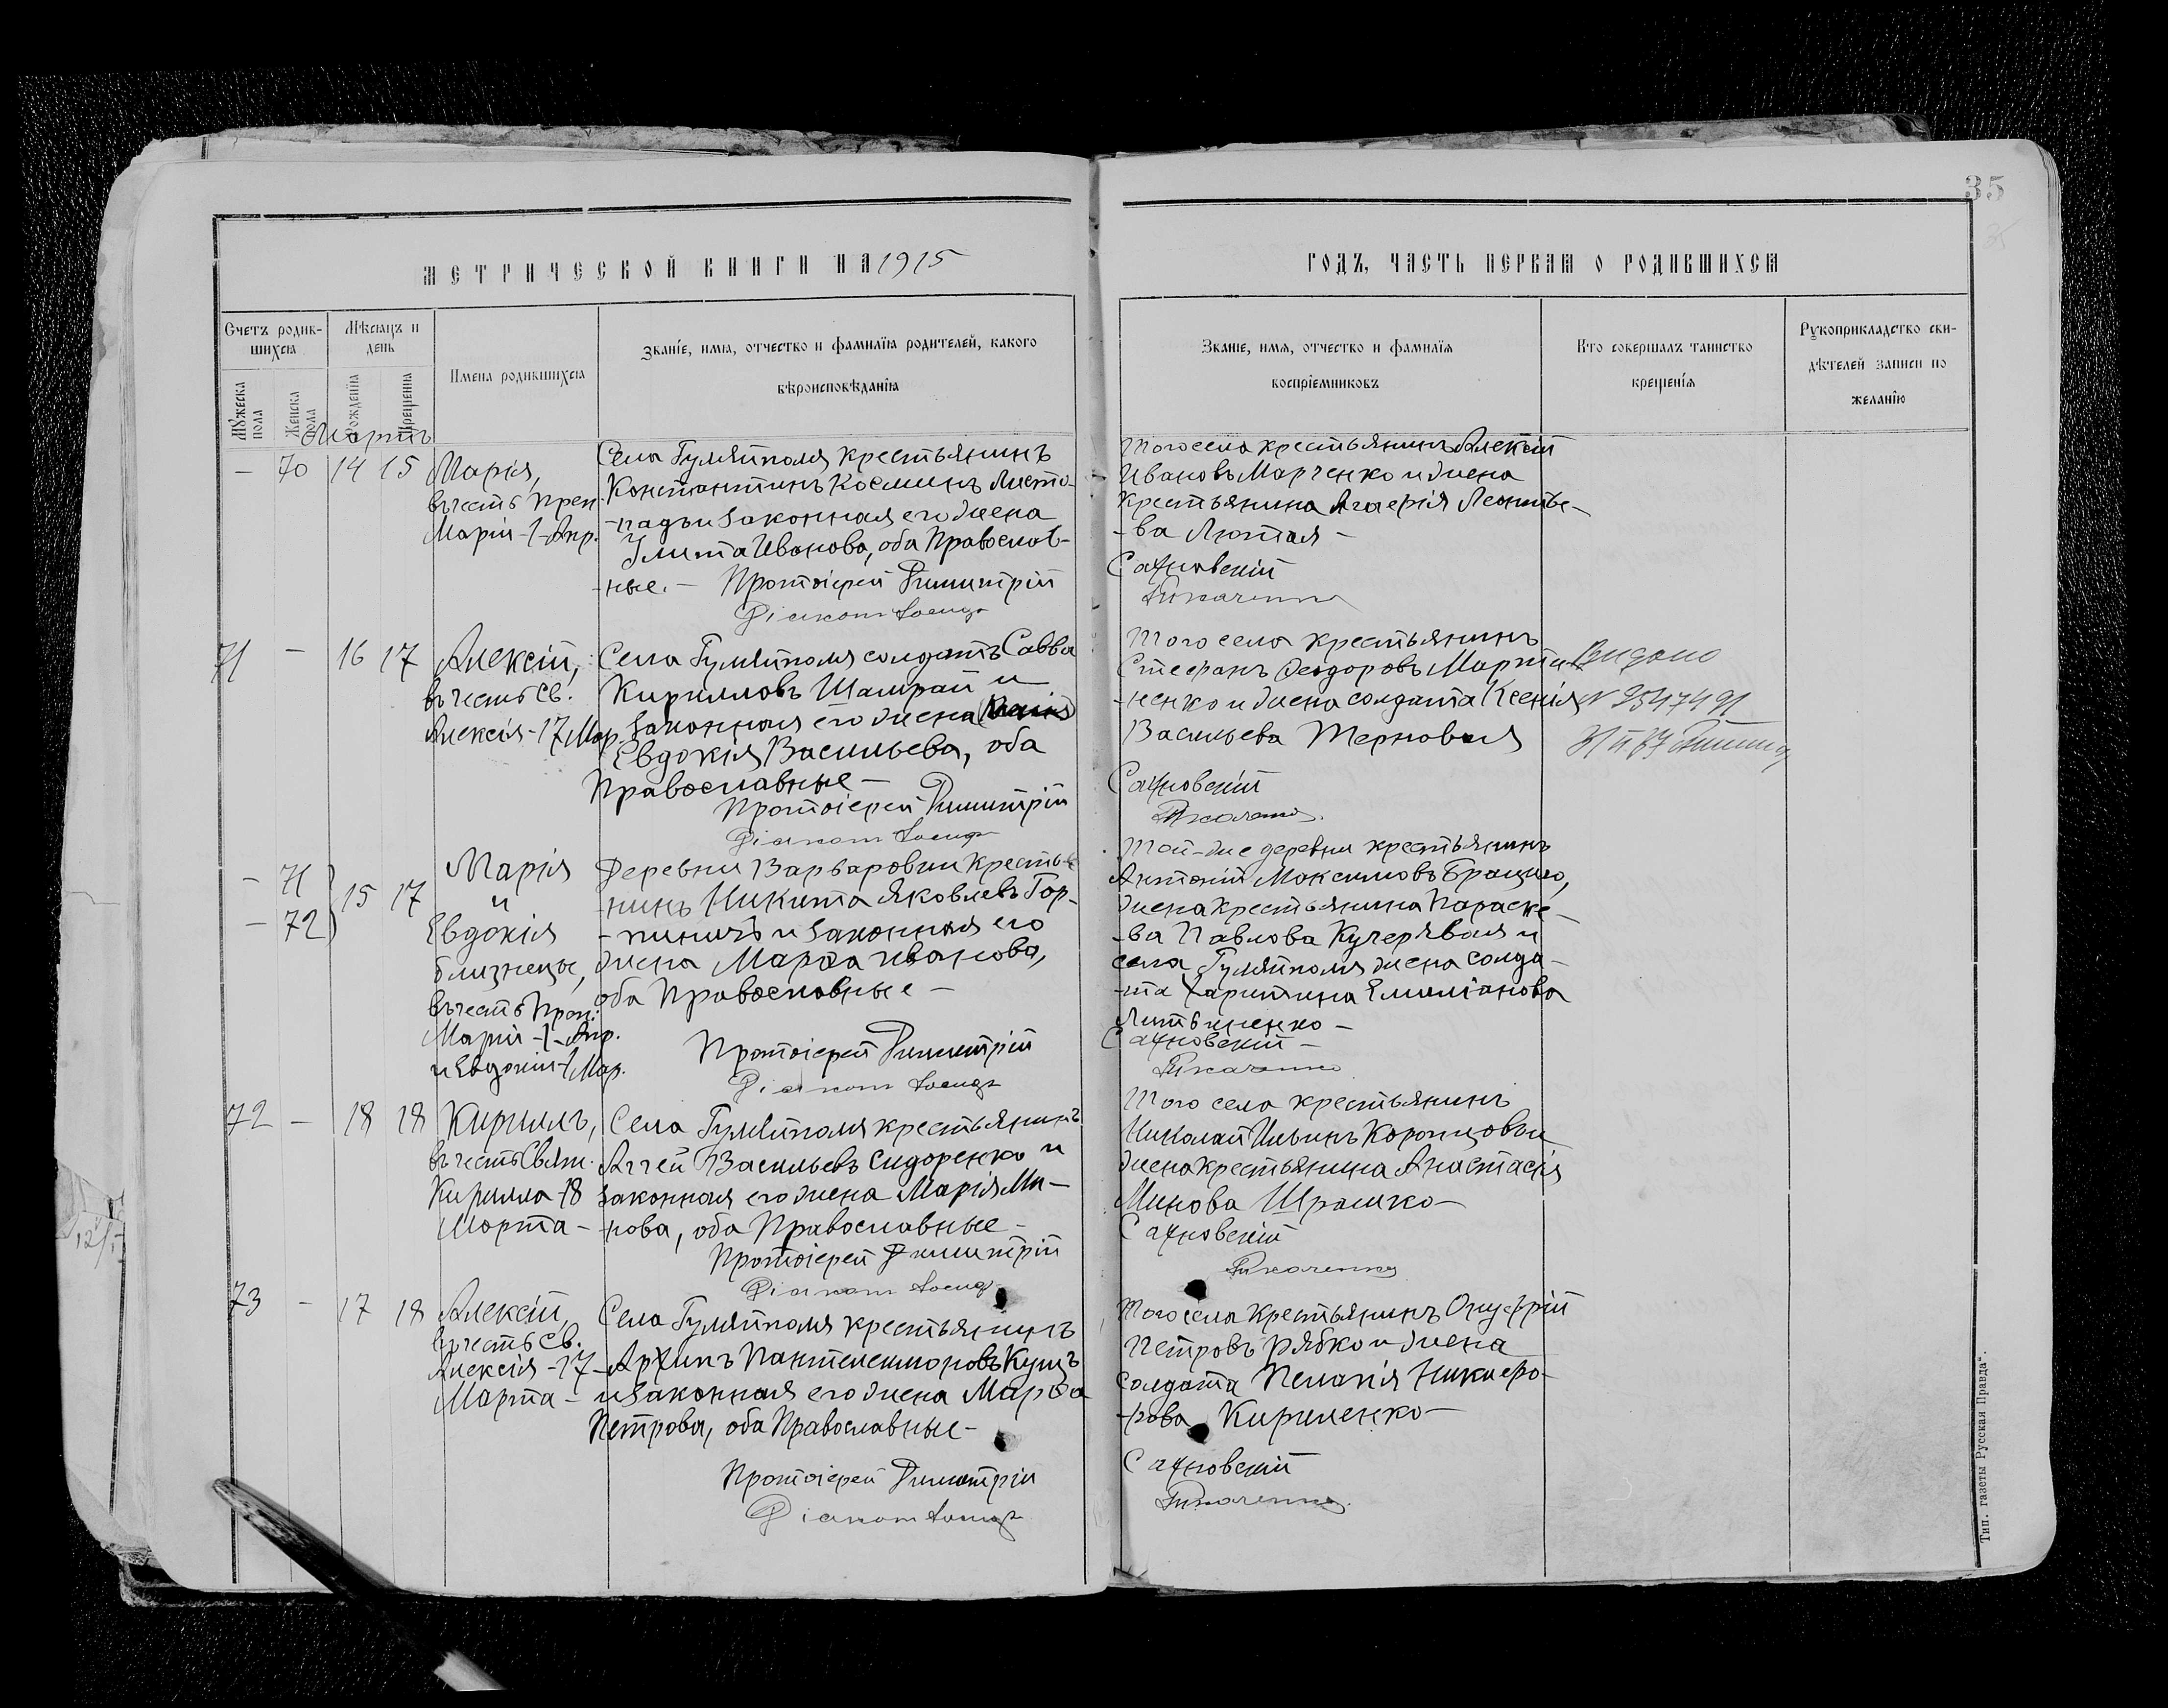 35
МЕТРИЧЕСКОЙ КНИГИ НА 1915
ГОДЪ, ЧАСТЬ ПЕРВАЯ О РОДИВШИХСЯ
Счетъ родив-
шихся
Мѣсяцъ и
день
Мужеска
пола
Женска
пола
Рожденія
Крещенія
Имена родившихся
Званіе, имя, отчество и фамилія родителей, какого
вѣроисповѣданія
Званіе, имя, отчество и фамилія
воспріемниковъ
Кто совершалъ таинство
крещенія
Рукоприкладство сви-
дѣтелей записи по
желанію
Мартъ
– 70 14 15
Марія,
въ честь Преп.
Маріи - 1 - Апр.
Села Гуляйполя крестьянинъ
Константинъ Косминъ Листо-
-падъ и законная его жена
Улита Иванова, оба Православ-
-ные. – Протоіерей Димитрій
Діаконъ
Того села крестьянинъ Алексій
Ивановъ Марченко и жена
крестьянина Агаѳія Леонтье-
-ва Лютая –
Сахновскій
Ткаченко
71 – 16 17
Алексій,
въ честь Св.
Алексія - 17 Мар.
Села Гуляйполя солдатъ Савва
Кирилловъ Шамрай и
законная его жена
Евдокія Васильева, оба
Православные –
Протоіерей Димитрій
Діаконъ
Того села крестьянинъ
Стефанъ Ѳеодоровъ Марты-
-ненко и жена солдата Ксенія
Васильева Терновая
Сахновскій
Ткаченко
Видано
№ 2547491
– 71
– 72 15 17
Марія
и
Евдокія
близнецы,
въ честь Преп.
Маріи - 1 - Апр.
и Евдокіи - 1 Мар.
Деревни Варваровки крестья-
-нинъ Никита Яковлевъ Гор-
-пиничъ и законная его
жена Марѳа Иванова,
оба Православные –
Протоіерей Димитрій
Діаконъ
Той-же деревни крестьянинъ
Антоній Максимовъ
жена крестьянина Параске-
-ва Павлова Кучерявая и
села Гуляйполя жена солда-
-та Харитина Емиліанова
Литвиненко –
Сахновскій –
Ткаченко
72 – 18 18
Кириллъ,
въ честь Свят.
Кирилла - 18
Марта –
Села Гуляйполя крестьянинъ
Аггей Васильевъ Сидоренко и
законная его жена Марія Ми-
-нова, оба Православные –
Протоіерей Димитрій
Діаконъ
Того села крестьянинъ
Николай Ильинъ и
жена крестьянина Анастасія
Минова Шрамко –
Сахновскій
Ткаченко
73 – 17 18
Алексій,
въ честь Св.
Алексія - 17 -
Марта –
Села Гуляйполя крестьянинъ
Архипъ Пантелеимоновъ Куцъ
и законная его жена Марѳа
Петрова, оба Православные –
Протоіерей Димитрій
Діаконъ
Того села крестьянинъ Онуфрій
Петровъ Рябко и жена
солдата Пелагія Никифо-
-рова Кириленко –
Сахновскій
Ткаченко
Тип. газеты „Русская Правда“.